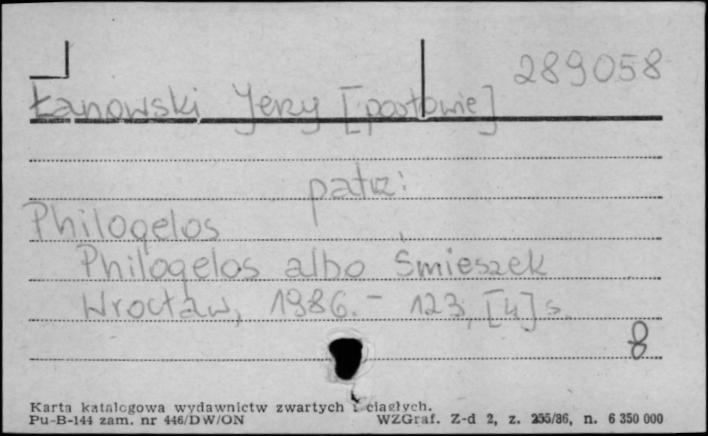 289058
Łanowski Jerzy [posłowie]
patrz:
Philogelos
Philogelos albo Śmieszek
Wrocław, 1986. - 123, [4] s.
8
Karta katalogowa wydawnictw zwartych i ciągłych.
Pu-B-144 zam. nr 446/DW/ON WZGraf. Z-d 2, z. 255/86, n. 6 350 000